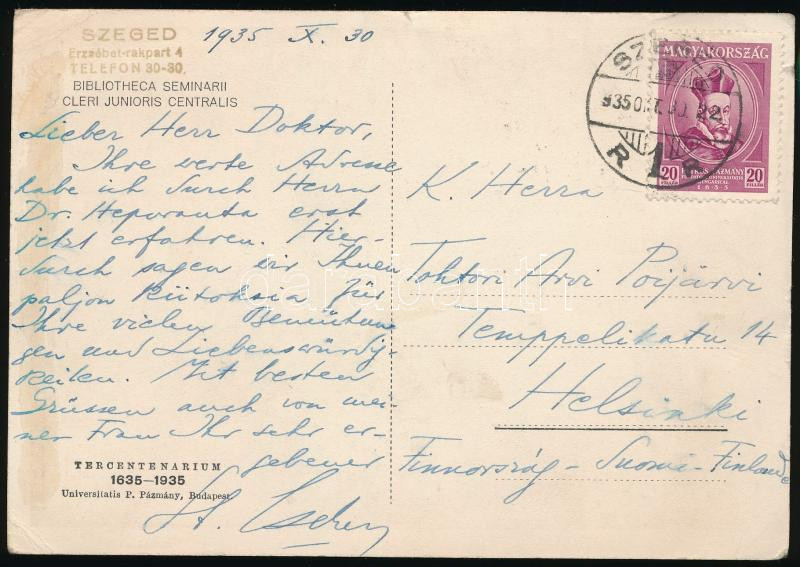 SZEGED
Erzsébet-rakpart 4
TELEFON 30-30.
1935 X. 30
BIBLIOTHECA SEMINARII
CLERI JUNIORIS CENTRALIS
Lieber Herr Doktor,
Ihre werte Adresse
habe ich durch Herrn
Dr. Heporauta erst
jetzt erfahren. Hier-
durch sagen wir Ihnen
paljon Kiitoksia für
Ihre vielen Bemühun-
gen und Liebenswürdig-
keiten. Mit besten
Grüssen auch von mei-
ner Frau Ihr sehr er-
gebener
TERCENTENARIUM
1635—1935
Universitatis P. Pázmány, Budapest
MAGYARORSZÁG
935 OKT. 30. 22
R 1 R
20
FILLÉR
PÁZMÁNY
1635
20
FILLÉR
K. Herra
Tohtori Arvi Poijärvi
Temppelikatu 14
Helsinki
Finnország - Suomi - Finlande
darabanth